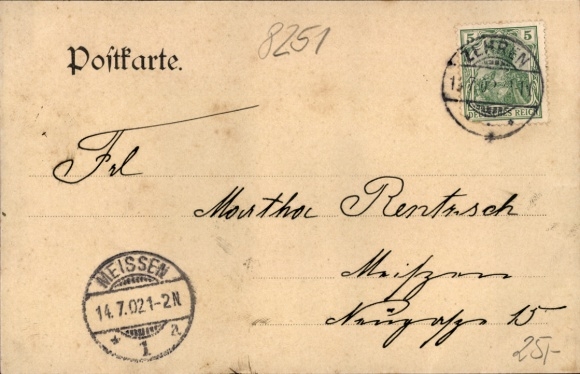 8251
Postkarte.
5 5
DEUTSCHES REICH
ZEHREN
Frl
Martha Rentzsch
Meißen
Neugasse 15
MEISSEN
14.7.02 1-2N
* 1 a
25,-